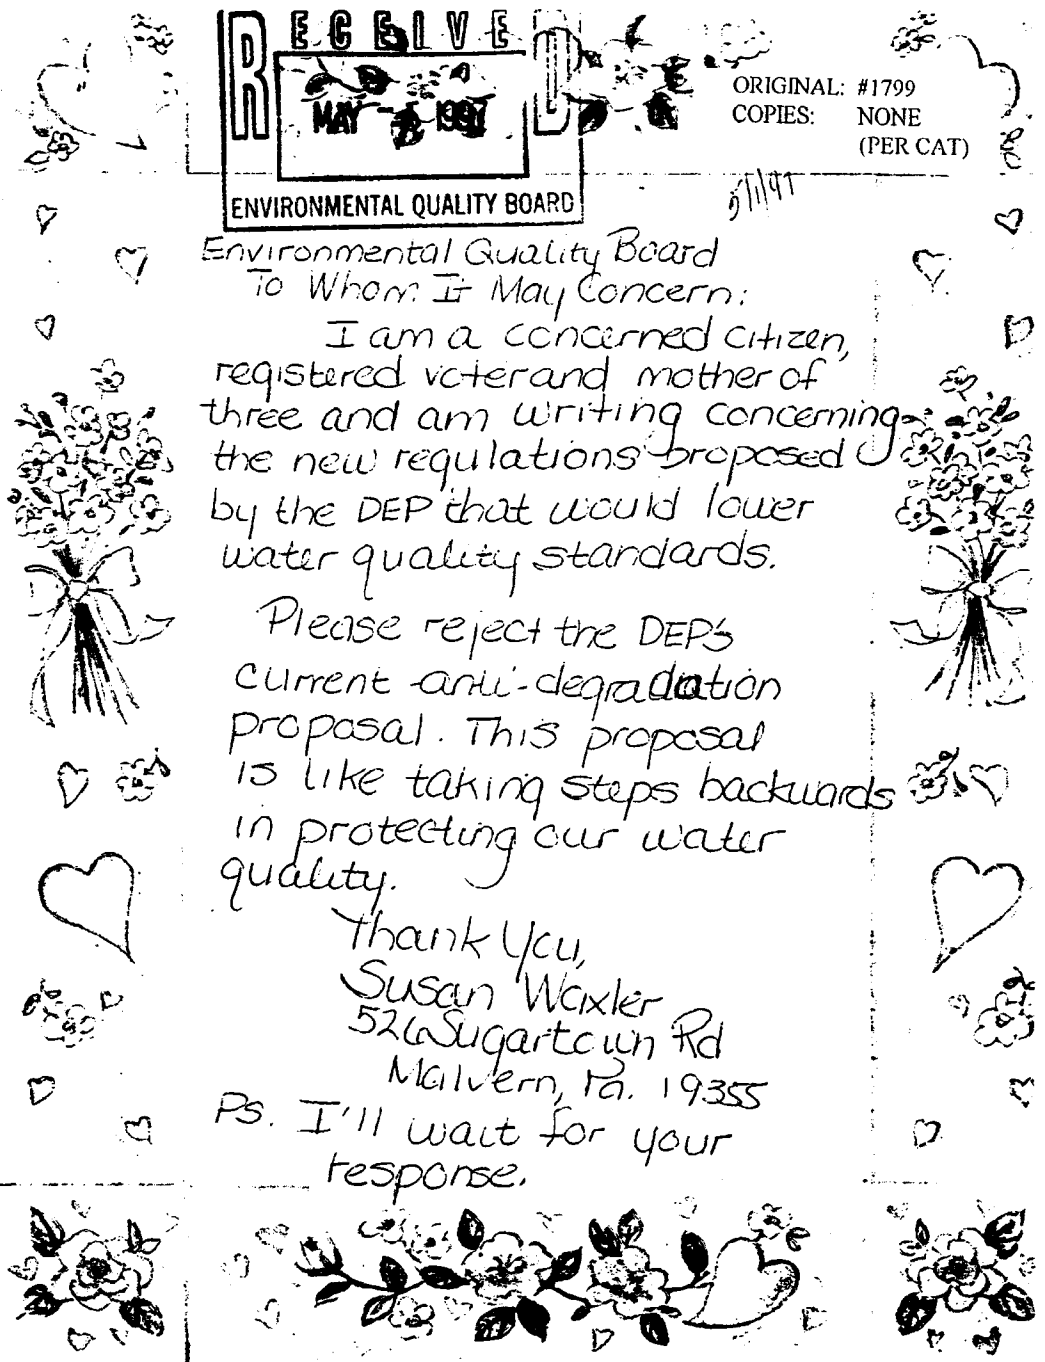 RECEIVED
MAY - 5 1997
ENVIRONMENTAL QUALITY BOARD
ORIGINAL: #1799
COPIES: NONE
(PER CAT)
5/1/97
Environmental Quality Board
To Whom It May Concern:
I am a concerned citizen,
registered voter and mother of
three and am writing concerning
the new regulations proposed
by the DEP that would lower
water quality standards.
Please reject the DEP's
current anti-degradation
proposal. This proposal
is like taking steps backwards
in protecting our water
quality.
Thank You,
Susan Waxler
526 Sugartown Rd
Malvern, Pa. 19355
Ps. I'll wait for your
response.